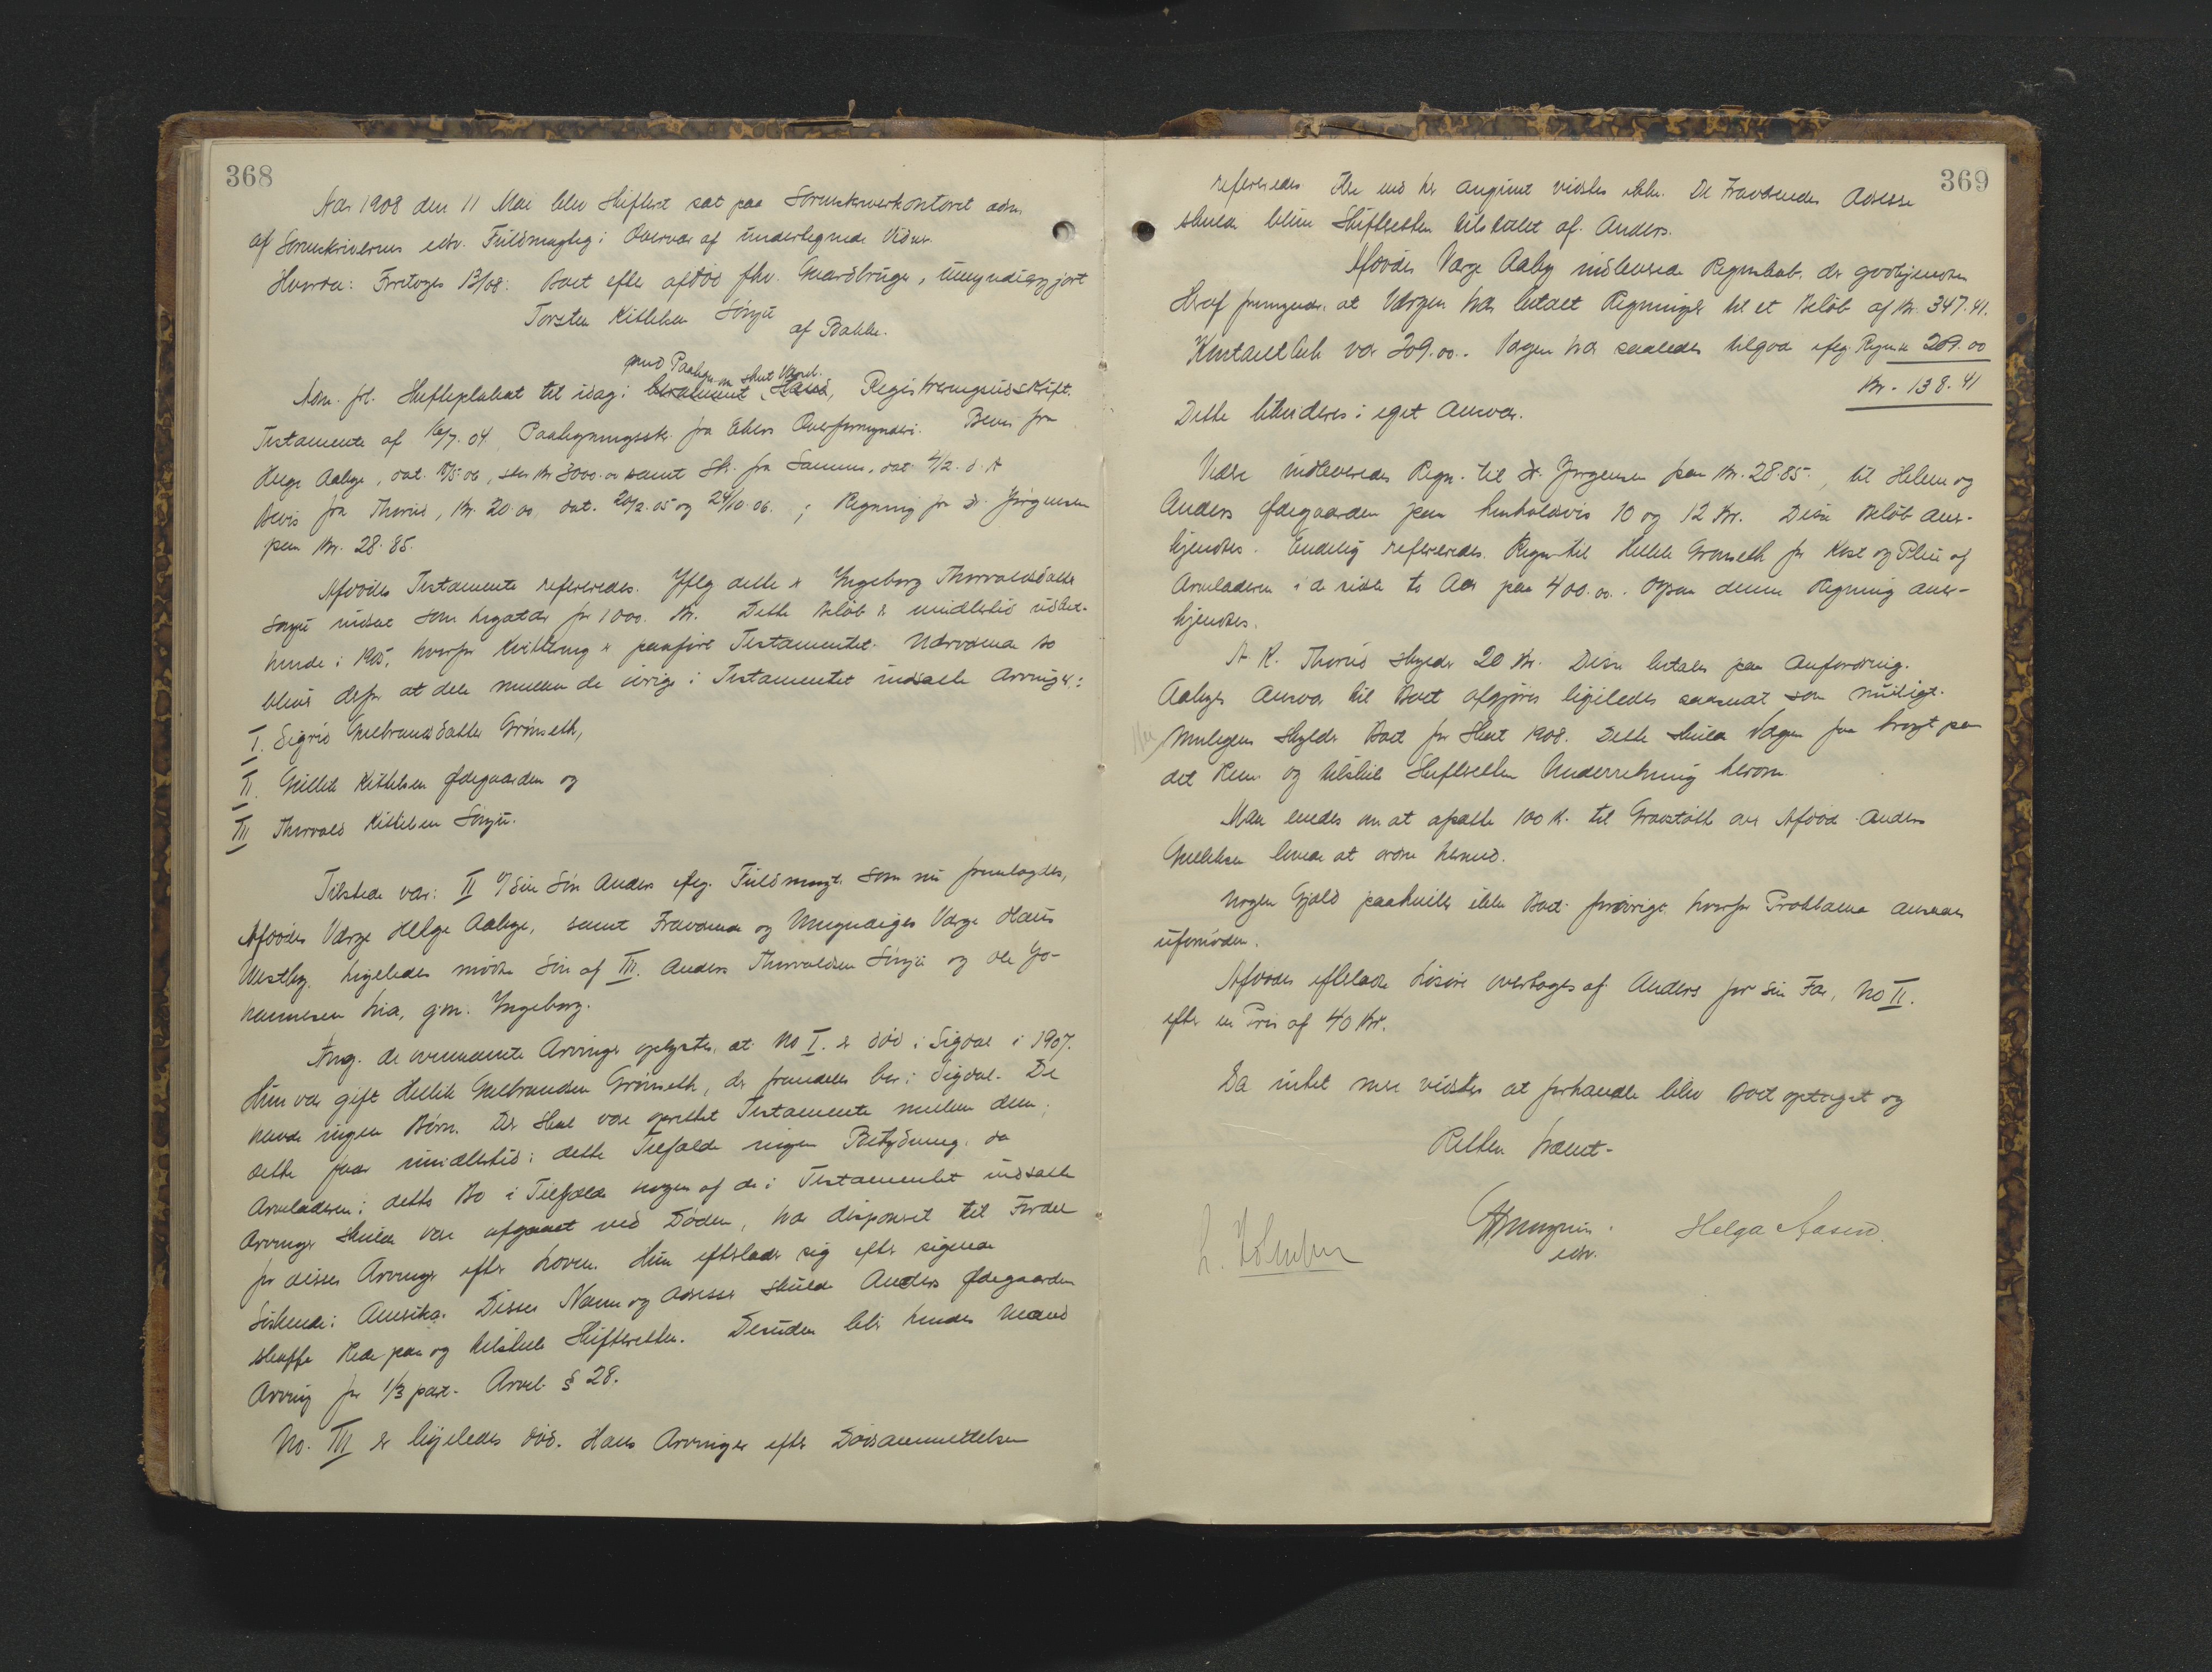 368
Aar 1908 den 11 Mai blev Skifteret sat paa Sorenskriverkontoret adm.
af Sorenskriverens edsv. Fuldmægtig i Overvær af undertegnede Vidner.
Hvorda: Foretoges 13/08: Boet efter afdød fhv. Gaardbruger, umyndiggjort
Torsten Kittelsen Sønju
af Bakke.
med Paategn. om
Adm. frl. Skifteplakat til idag; Registreringsudskrift.
Testamente af /7. 04, Paategningssk. fra Ekers Overformynderi. Bevis fra
Helge Aabye, dat. /5 06, stor Kr 3000.00 samt Sk. fra Samme, dat. 4/2. d. A
Bevis fra Thorud, Kr. 20.00, dat. 20/2. 05 og 24/10. 06. ; Regning fra Dr. Jørgensen
paa Kr. 28.85.
Afdødes Testamente refereredes. Iflg dette er Ingeborg Thorvaldsdatter
Sønju indsat som Legatar for 1000. Kr. Dette Beløb er imidlertid udbet.
hende i 1905, hvorfor Kvittering er paaført Testamentet. Nærværende Bo
bliver derfor at dele mellem de øvrige i Testamentet indsatte Arvinger:
I. Sigrid Gulbrandsdatter Grønseth,
II. Gullik Kittelsen Ødegaarden og
III Thorvald Kittelsen Sønju.
Tilstede var: II v/ sin Søn Anders iflg. Fuldmagt som nu fremlagdes,
Afdødes Værge Helge Aabye, samt Fraværende og Umyndiges Værge Hans
Westby. Ligeledes mødte Søn af III. Anders Thorvaldsen Sønju og Ole Jo-
hannesen Lia, g.m. Ingeborg.
Ang. de ovennævnte Arvinger oplystes, at No I. er død i Sigdal i 1907.
Hun var gift Hellik Gulbrandsen Grønseth, der fremdeles bor i Sigdal. De
havde ingen Børn. Der skal være oprettet Testamente mellem dem;
dette faar imidlertid i dette Tilfælde ingen Betydning, da
Arveladeren i dette Bo i Tilfælde nogen af de i Testamentet indsatte
Arvinger skulde være afgaaet ved Døden, har disponeret til Fordel
for disses Arvinger efter Loven. Hun efterlader sig efter sigende
Søskende i Amerika. Disses Navne og Adresser skulde Anders Ødegaarden
skaffe Rede paa og tilstille Skifteretten. Desuden blir hendes Mand
Arving for 1/3 part. Arvel. § 28.
No. III er ligeledes død. Hans Arvinger efter Dødsanmeldelsen
369
refereredes. Flere end her angivet vidstes ikke. De Fraværendes Adresse
skulde blive Skifteretten tilstillet af Anders.
Afdødes Værge Aaby indleverede Regnskab, der godkjendtes
Heraf fremgaar, at Værgen har betalt Regninger til et Beløb af Kr. 347.41.
Kontantbeh. var 209.00. Værgen har saaledes tilgode iflg. Regnsk 209.00
Kr. 138.41
Dette likvideres i eget Ansvar.
Videre indleveredes Regn. til Dr. Jørgensen paa Kr. 28.85, til Helene og
Anders Ødegaarden paa henholdsvis 10 og 12 Kr. Disse Beløb aner-
kjendtes. Endelig refereredes Regn. til Hellik Grønseth for Kost og Pleie af
Arveladeren i de sidste to Aar paa 400.00. Ogsaa denne Regning aner-
kjendtes.
A. K. Thorud skylder 20 Kr. Disse betales paa Anfordring.
Aabyes Ansvar til Boet afgjøres ligeledes saasnart som muligt.
Muligens skylder Boet for Skat 1908. Dette skulde Værgen faa bragt paa
det Rene og tilstille Skifteretten Underretning herom.
Man enedes om at afsætte 100 K. til Gravstøtte over Afdøde. Anders
Gulliksen lovede at ordne hermed.
Nogen Gjæld paahviler ikke Boet forøvrigt, hvorfor Proklama ansaaes
ufornøden.
Afdødes efterladte Løsøre overtoges af Anders for sin Far, No II.
efter en Pris af 40 Kr.
Da intet mere vidstes at forhandle blev Boet optaget og
Retten hævet.
edsv.
Helga Aasen.